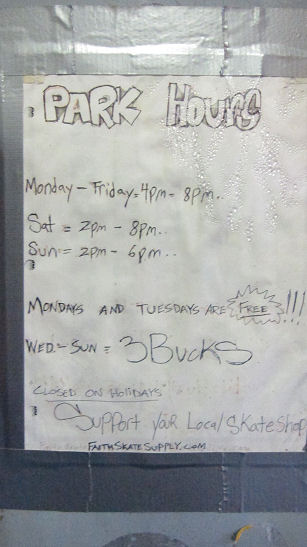 PARK HOURS
Monday - Friday = 4pm - 8pm..
Sat = 2pm - 8pm..
Sun = 2pm - 6pm..
MONDAYS AND TUESDAYS ARE FREE!!!
WED. - SUN = 3 BUCKS
"CLOSED ON HOLIDAYS"
Support your Local Skateshop
FAITHSKATESUPPLY.COM